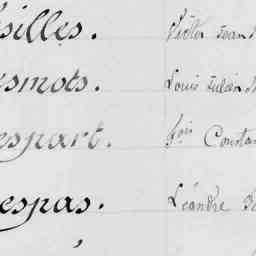 silles. Victor Jean
smots. Louis Julien
espart. fois Constan
espas. Léandre